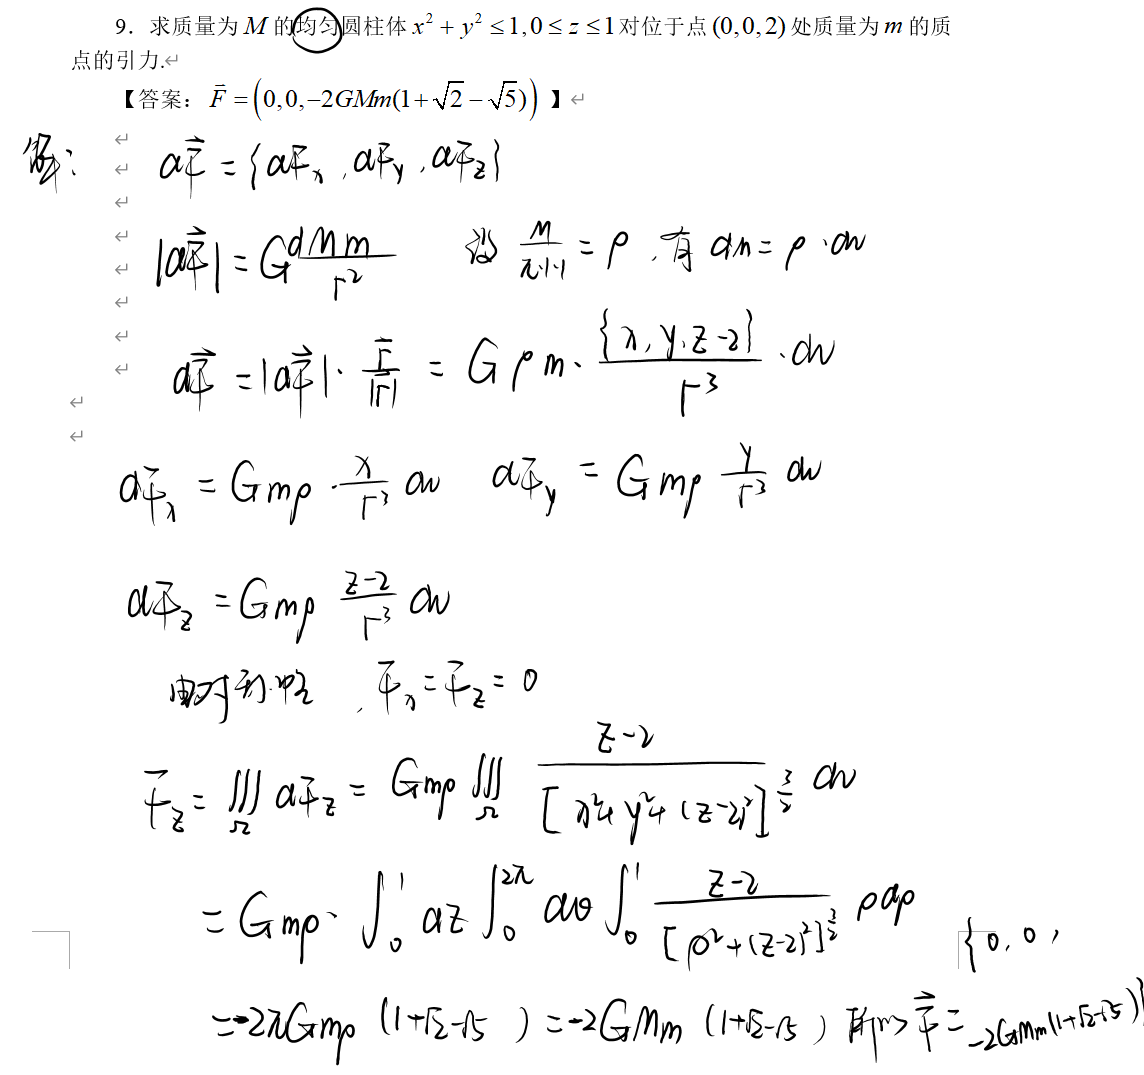 9. 求质量为 M 的均匀圆柱体 x² + y² ≤ 1, 0 ≤ z ≤ 1 对位于点 (0,0,2) 处质量为 m 的质
点的引力.
【答案: F̄ = (0,0,−2GMm(1+√2−√5)) 】
解: dF⃗ = {dFₓ, dF_y, dF_z}
|dF⃗| = G dMm/r² 设 M/(π·1·1) = ρ, 有 dm = ρ·dv
dF⃗ = |dF⃗|· r̄/|r̄| = Gρm· {x, y, z−2}/r³ ·dv
dFₓ = Gmρ· x/r³ dv dF_y = Gmρ y/r³ dv
dF_z = Gmρ (z−2)/r³ dv
由对称性, Fₓ = F_z = 0
F_z = ∭_Ω dF_z = Gmρ ∭_Ω (z−2)/[x²+y²+(z−2)²]^(3/2) dv
= Gmρ· ∫₀¹ dz ∫₀^(2π) dθ ∫₀¹ (z−2)/[ρ²+(z−2)²]^(3/2) ρdρ
= −2πGmρ (1+√2−√5) = −2GMm (1+√2−√5) 所以 F⃗ = {0, 0, −2GMm(1+√2−√5)}